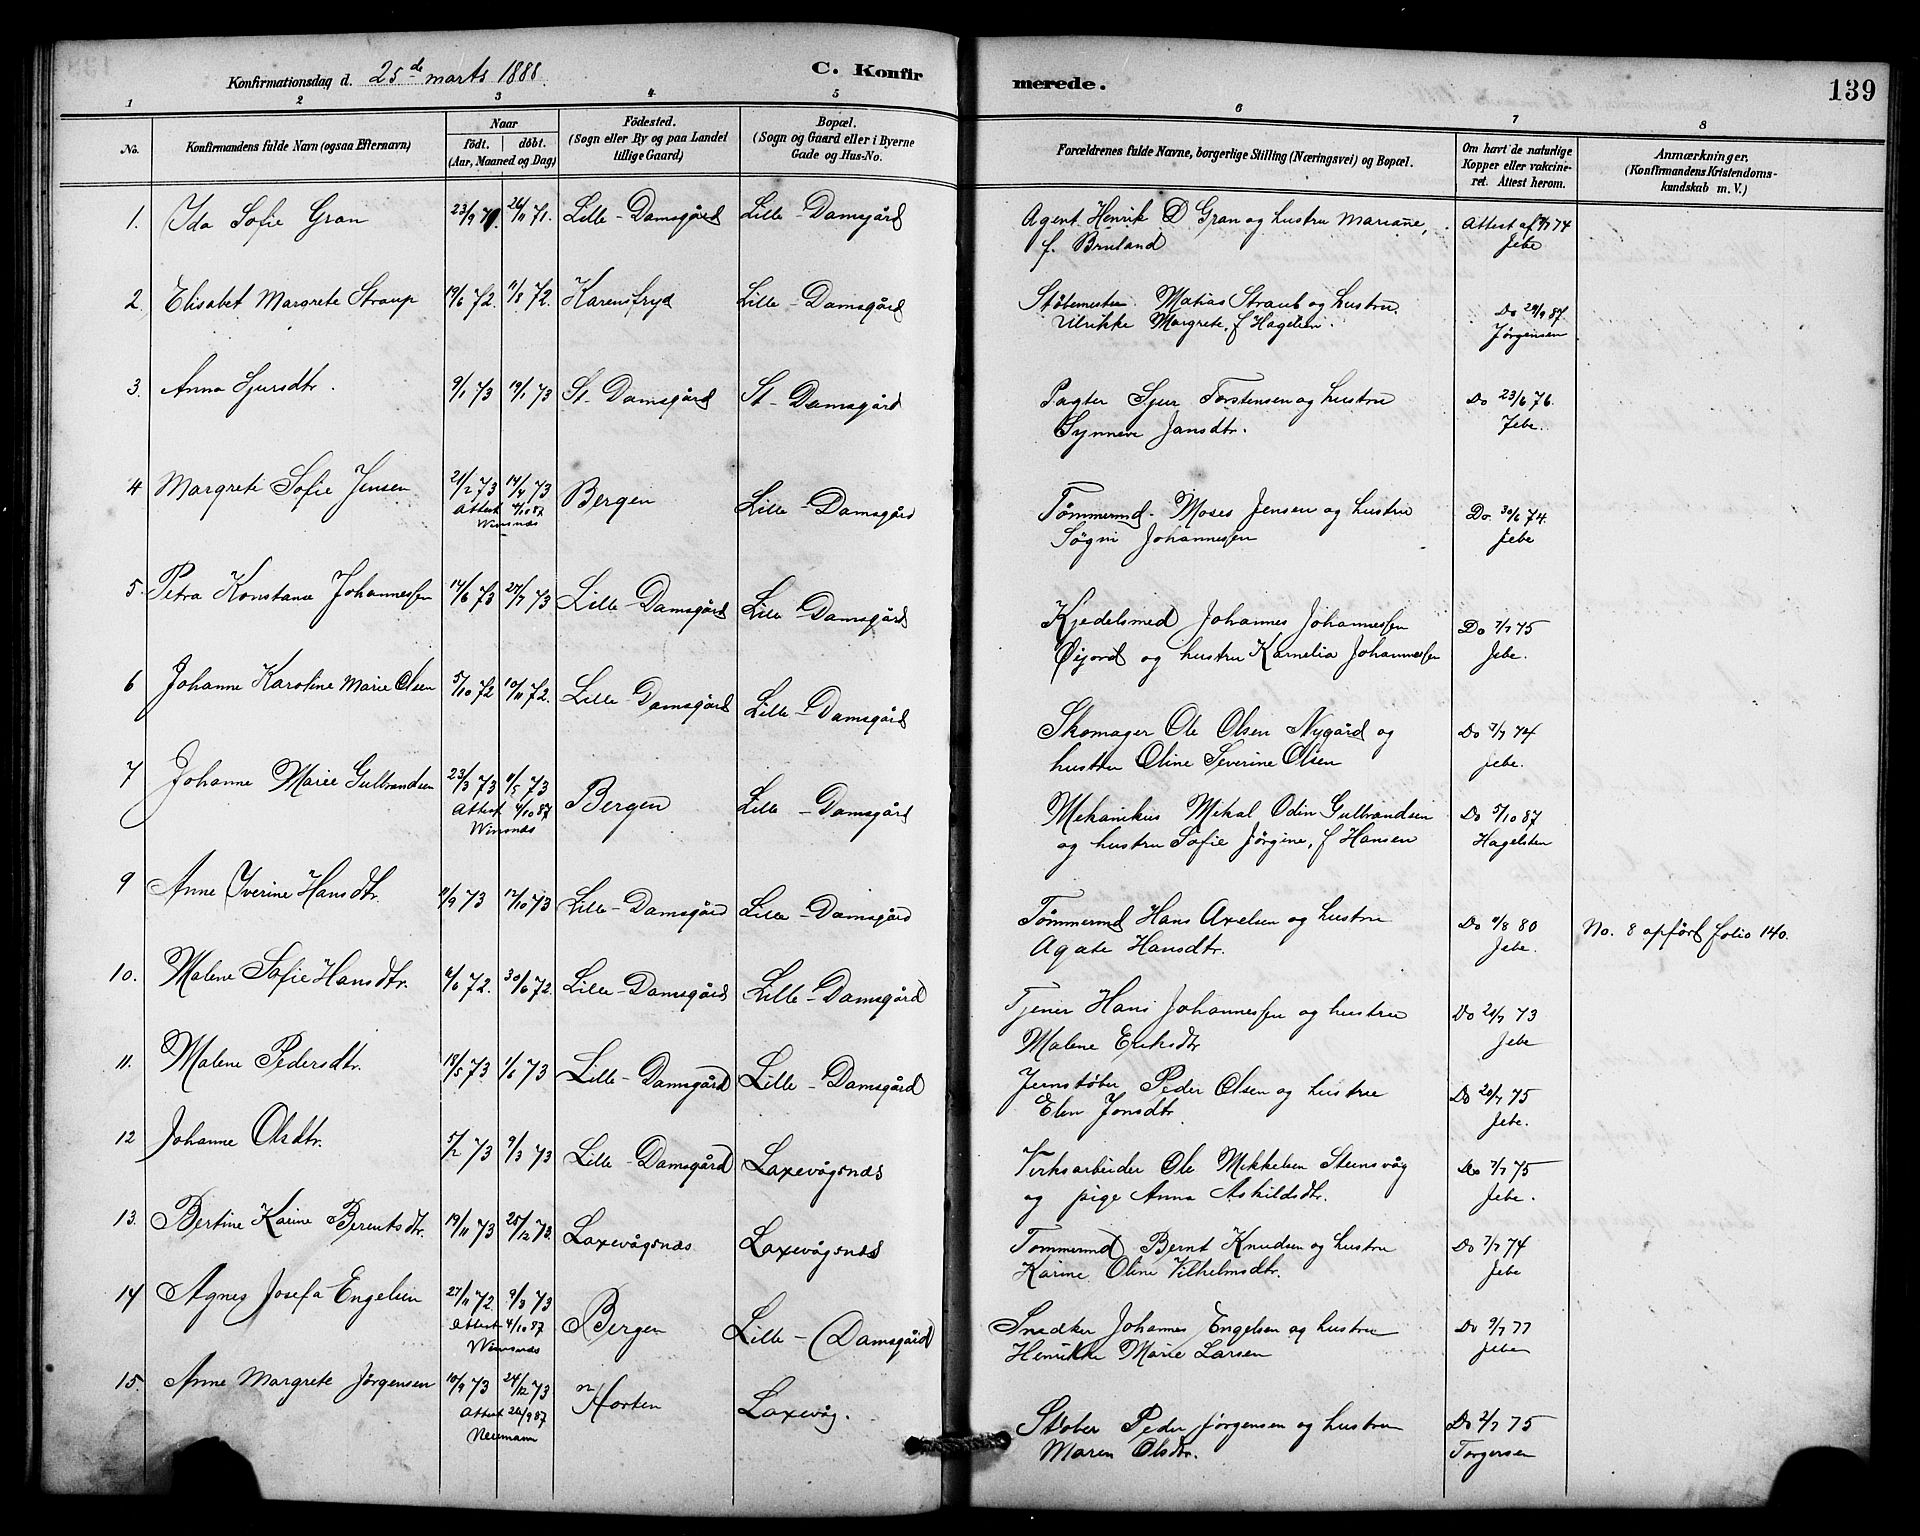 Konfirmationsdag d. 25de marts 1888. C. Konfirmerede. 139
1 2 3 4 5 6 7 8
No. Konfirmandens fulde Navn (ogsaa Efternavn) Naar födt. döbt. (Aar, Maaned og Dag) Födested. (Sogn eller By og paa Landet tillige Gaard) Bopæl. (Sogn og Gaard eller i Byerne Gade og Hus-No. Forældrenes fulde Navne, borgerlige Stilling (Næringsvei) og Bopæl. Om havt de naturlige Kopper eller vakcineret. Attest herom. Anmærkninger. (Konfirmandens Kristendomskundskab m. V.)
1. Ida Sofie Gran 23/9 71. 26/11 71. Lille-Damsgård Lille-Damsgård Agent Henrik D Gran og hustru Mariane, Attest af 74
f. Bruland Jebe
2. Elisabet Margrete Straup 19/6 72. 11/8 72. Karensfryd Lille-Damsgård Støbemester Matias Straub og hustru Do 29/9 87.
Ulrikke Margrete, f Hagelsen. Jørgensen
3. Anna Sjursdtr. 9/1 73 19/1 73 St. Damsgård St-Damsgård Pagter Sjur Torstensen og hustru Do 23/6 76.
Synneve Jansdtr. Jebe.
4 Margrete Sofie Jensen 21/2 73 14/4 73 Bergen Lille-Damsgård Tømmermd. Moses Jensen og hustru Do. 30/6 74.
Attest 4/10 87 Søgni Johannessen Jebe
Winsnæs
5. Petra Konstanse Johannessen 14/6 73 27/7 73 Lille-Damsgård Lille-Damsgård Kjedelsmed Johannes Johannessen Do 7/7 75
Øijord og hustru Karnelia Johannessen Jebe.
6 Johanne Karoline Marie Olsen 5/10 72 10/11 72. Lille-Damsgård Lille-Damsgård Skomager Ole Olsen Nygård og Do 7/7 74
hustru Oline Severine Olsen Jebe.
7 Johanne Marie Gulbrandsen 23/3 73 11/5 73 Bergen Lille-Damsgård Mekanikus Mikal Odin Gulbrandsen Do 5/10 87
Attest 4/10 87 og hustru Sofie Jørgine, f Hansen Hagelsten
Winsnæs
9 Anne Iverine Hansdtr. 11/9 73 12/10 73 Lille-Damsgård Lille-Damsgård Tømmermd Hans Axelsen og hustru Do 11/8 80 No. 8 opført folio 140.
Agate Hansdtr. Jebe.
10. Malene Sofie Hansdtr. 6/6 72. 30/6 72. Lille-Damsgård Lille-Damsgård Tjener Hans Johannessen og hustru Do 21/7 73
Malene Eriksdtr Jebe
11. Malene Pedersdtr. 18/5 73 1/6 73 Lille-Damsgård Lille-Damsgård Jernstøber Peder Olsen og hustru Do 20/7 75
Elen Jonsdtr. Jebe.
12 Johanne Olsdtr. 5/2 73 9/3 73 Lille-Damsgård Laxevågsnæs Virksarbeider Ole Mikkelsen Steensvåg Do 7/7 75
og pige Anna Askildsdtr. Jebe.
13. Bertine Karine Berentsdtr. 19/11 73 25/12 73. Laxevågsnæs Laxevågsnæs Tømmermd Bernt Knudsen og hustru Do 7/7 74
Karine Oline Vilhelmsdtr. Jebe
14 Agnes Josefa Engelsen 27/11 72. 9/3 73 Bergen Lille-Damsgård Snedker Johannes Engelsen og hustru Do 9/7 77
Attest 4/10 87 Henrikke Marie Larsen Jebe
Winsnæs
15. Anne Margrete Jørgensen 10/9 73 24/12 73 Horten Laxevåg. Støber Peder Jørgensen og hustru Do 2/7 75
Attest 26/9 87 Maren Olsdtr. Torgersen
Neumann